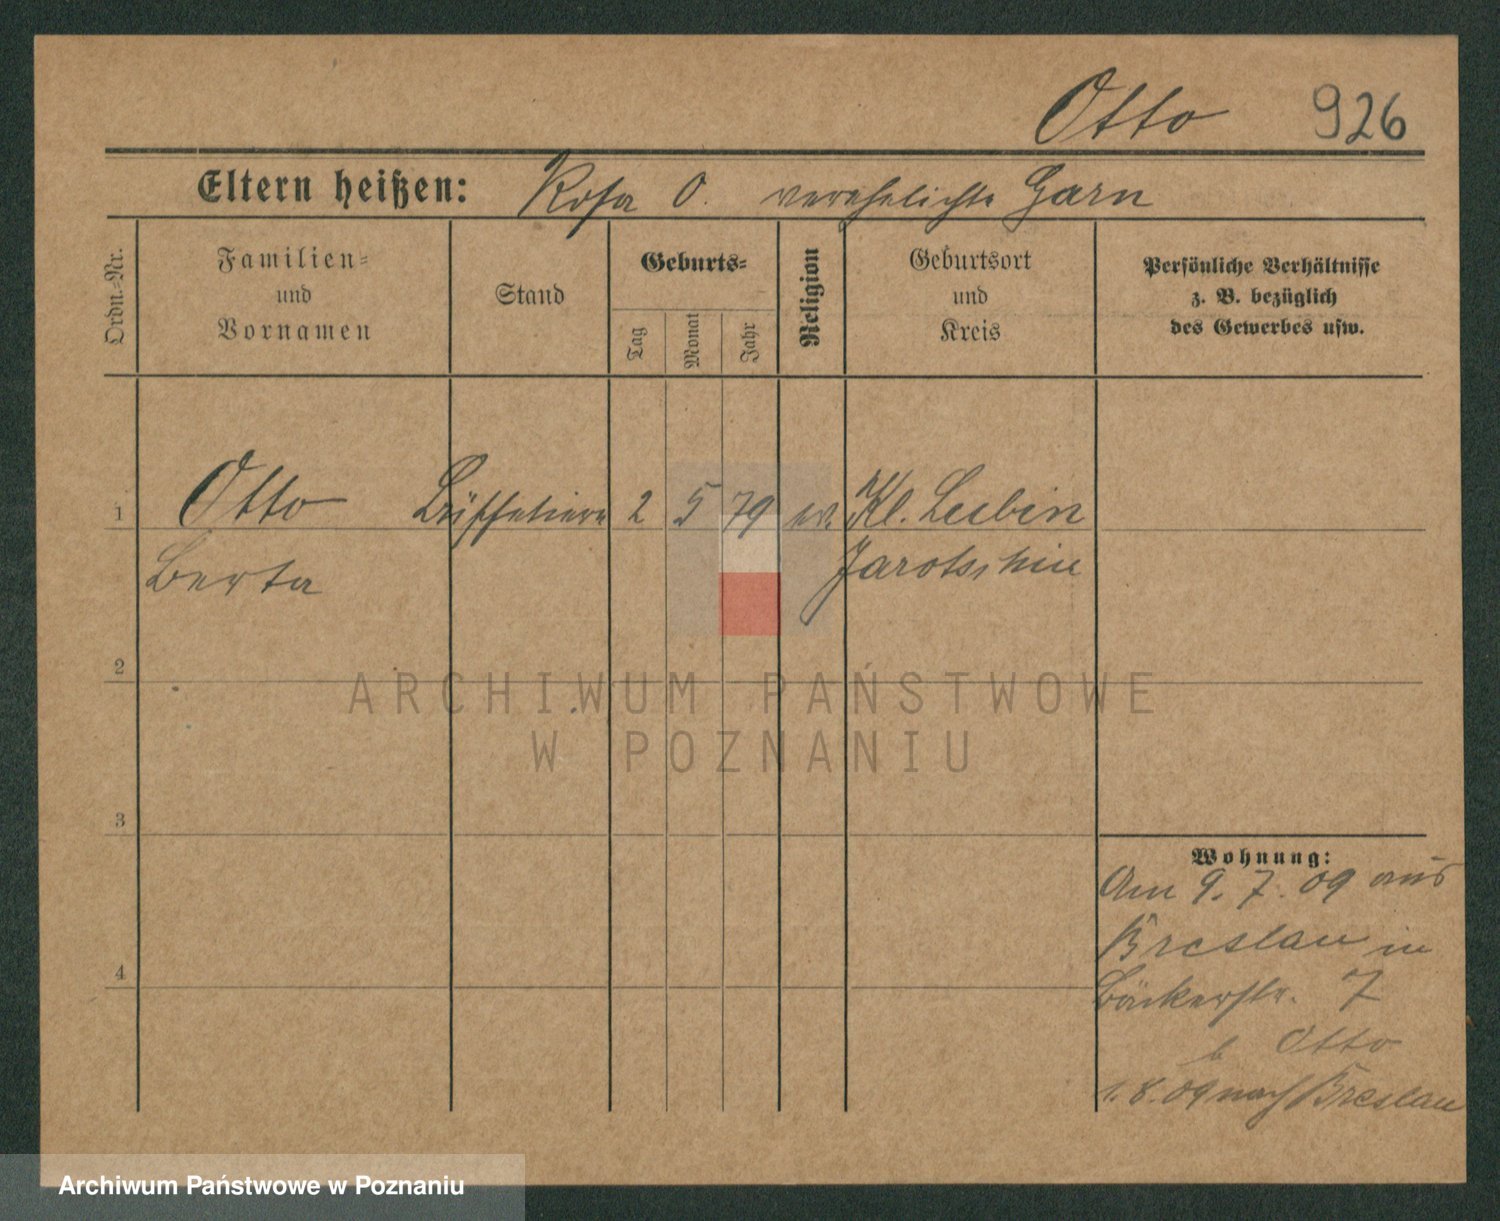 Otto 926
Eltern heißen: Rosa O. verehelichte Garn
Ordn.-Nr.
Familien-
und
Vornamen
Stand
Geburts-
Tag
Monat
Jahr
Religion
Geburtsort
und
Kreis
Persönliche Verhältnisse
z. B. bezüglich
des Gewerbes usw.
1 Otto Büffetiere 2 5 79 ev. Kl. Lubin
Berta Jarotschin
2
3
4
Wohnung:
Am 9. 7. 09 aus
Breslau in
Bäckerstr. 7
b Otto
1. 8. 09 nach Breslau
ARCHIWUM PAŃSTWOWE
W POZNANIU
Archiwum Państwowe w Poznaniu